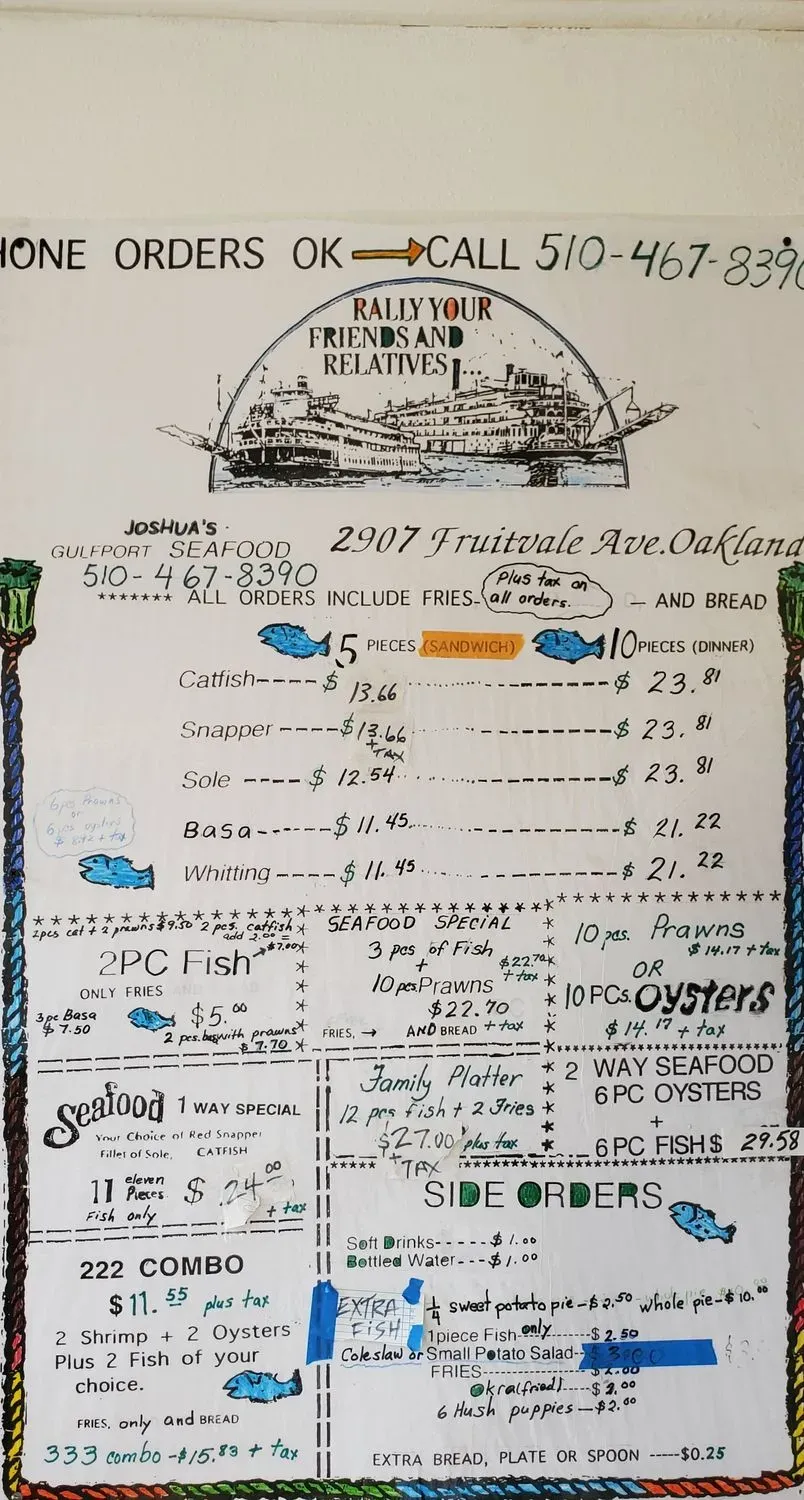 HONE ORDERS OK CALL 510-467-8390
RALLY YOUR
FRIENDS AND
RELATIVES...
JOSHUA'S
GULFPORT SEAFOOD
510-467-8390
2907 Fruitvale Ave. Oakland
******* ALL ORDERS INCLUDE FRIES- Plus tax on all orders. — AND BREAD
5 PIECES (SANDWICH) 10 PIECES (DINNER)
Catfish---- $ 13.66 ---- $ 23.81
Snapper ---- $13.66 + TAX ---- $ 23.81
Sole ---- $ 12.54 ---- $ 23.81
Basa ---- $ 11.45 ---- $ 21.22
Whitting ---- $ 11.45 ---- $ 21.22
6 pcs Prawns
or
6 pcs oysters
+ tax
2pcs cat + 2 prawns $9.50 2 pcs. catfish
add 2.00 =
$7.00
2PC Fish
ONLY FRIES
$5.00
3 pc Basa
$ 7.50
2 pcs. bas with prawns
$ 7.70
SEAFOOD SPECIAL
3 pcs of Fish
+
$22.70
+ tax
10 pcs. Prawns
$22.70
FRIES, → AND BREAD + tax
10 pcs. Prawns
$ 14.17 + tax
OR
10 PCs. OYSTERS
$ 14.17 + tax
Seafood 1 WAY SPECIAL
Your Choice of Red Snapper
Fillet of Sole, CATFISH
11 eleven Pieces $ 24.00
Fish only + tax
Family Platter
12 pcs fish + 2 Fries
$27.00 plus tax
+ TAX
2 WAY SEAFOOD
6 PC OYSTERS
+
6 PC FISH $ 29.58
222 COMBO
$11.55 plus tax
2 Shrimp + 2 Oysters
Plus 2 Fish of your
choice.
FRIES, only and BREAD
333 combo - $15.83 + tax
SIDE ORDERS
Soft Drinks------ $ 1.00
Bottled Water--- $ 1.00
1/4 sweet potato pie - $2.50 whole pie - $10.00
EXTRA
FISH
1 piece Fish only ------ $ 2.50
Coleslaw or Small Potato Salad-- $ 3.00
FRIES------ $2.00
Okra (fried) ----- $ 2.00
6 Hush puppies — $2.00
EXTRA BREAD, PLATE OR SPOON -----$0.25